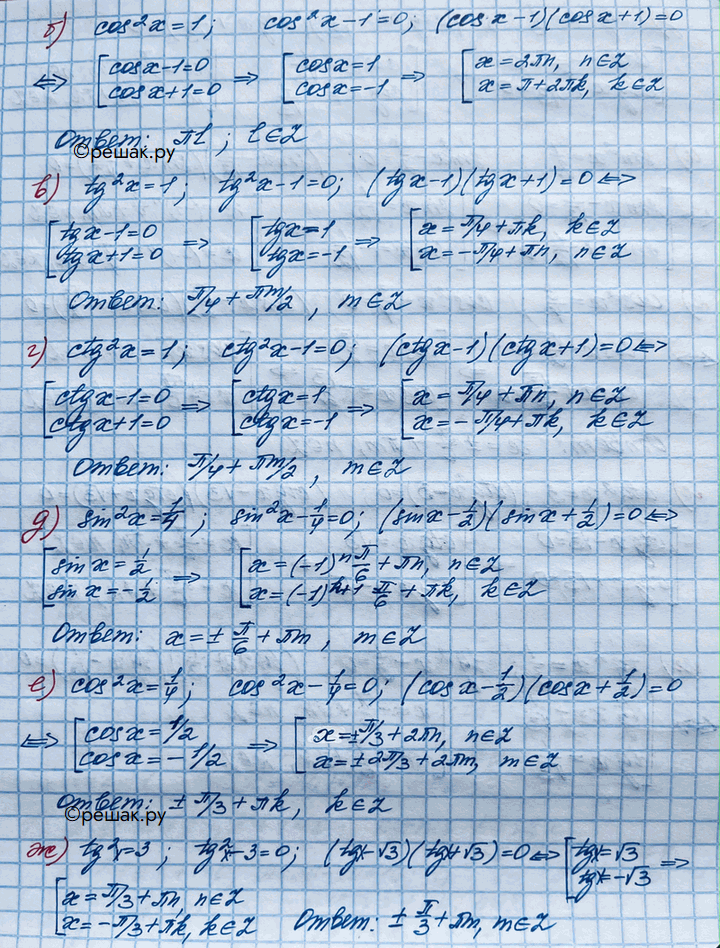 б) cos²x=1; cos²x-1=0; (cosx-1)(cosx+1)=0
⇔ [cosx-1=0 ⇒ [cosx=1 ⇒ [x=2πn, n∈Z
cosx+1=0 cosx=-1 x=π+2πk, k∈Z
Ответ: πl; l∈Z
©решак.ру
в) tg²x=1; tg²x-1=0; (tgx-1)(tgx+1)=0 ⇔
[tgx-1=0 ⇒ [tgx=1 ⇒ [x=π/4+πk, k∈Z
tgx+1=0 tgx=-1 x=-π/4+πn, n∈Z
Ответ: π/4+πm/2, m∈Z
г) ctg²x=1; ctg²x-1=0; (ctgx-1)(ctgx+1)=0 ⇔
[ctgx-1=0 ⇒ [ctgx=1 ⇒ [x=π/4+πn, n∈Z
ctgx+1=0 ctgx=-1 x=-π/4+πk, k∈Z
Ответ: π/4+πm/2, m∈Z
д) sin²x=1/4; sin²x-1/4=0; (sinx-1/2)(sinx+1/2)=0 ⇔
[sinx=1/2 ⇒ [x=(-1)ⁿ π/6+πn, n∈Z
sinx=-1/2 x=(-1)ᵏ⁺¹ π/6+πk, k∈Z
Ответ: x=±π/6+πm, m∈Z
е) cos²x=1/4; cos²x-1/4=0; (cosx-1/2)(cosx+1/2)=0
⇔ [cosx=1/2 ⇒ [x=±π/3+2πn, n∈Z
cosx=-1/2 x=±2π/3+2πm, m∈Z
Ответ: ±π/3+πk, k∈Z
©решак.ру
ж) tg²x=3; tg²x-3=0; (tgx-√3)(tgx+√3)=0 ⇔ [tgx=√3 ⇒
tgx=-√3
[x=π/3+πn, n∈Z
x=-π/3+πk, k∈Z Ответ: ±π/3+πm, m∈Z